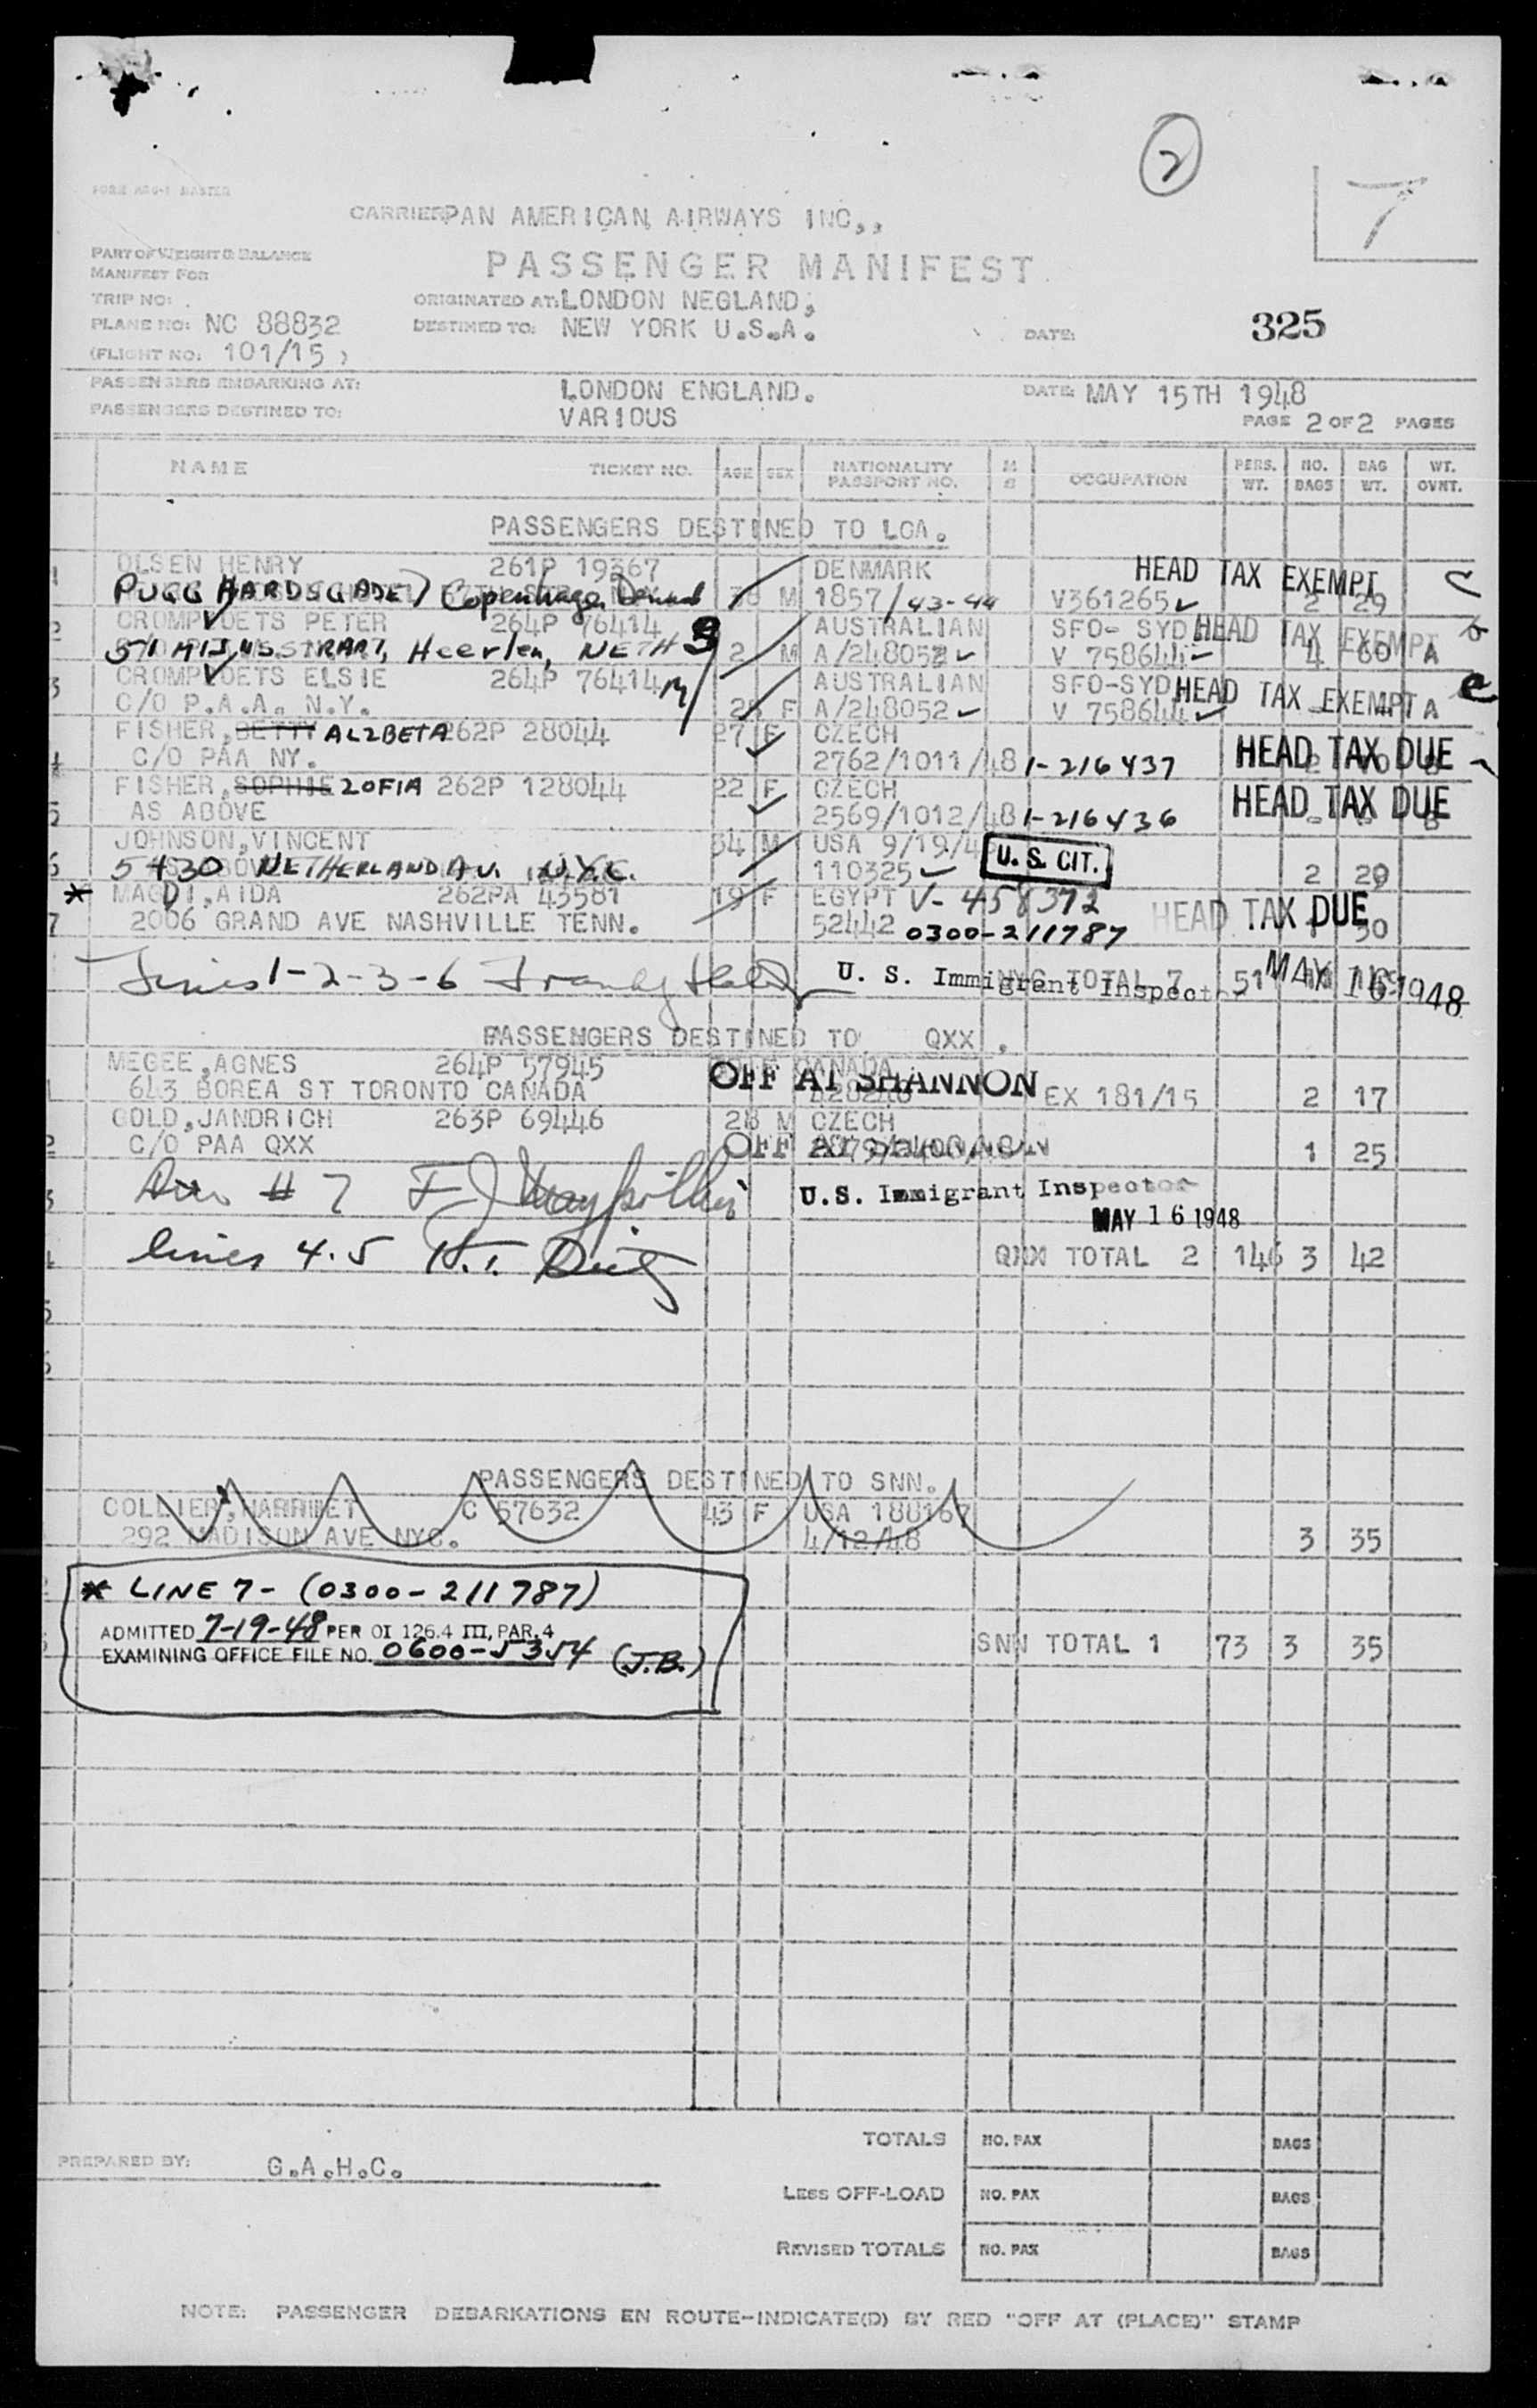 2
7
FORM
MASTER
CARRIER PAN AMERICAN AIRWAYS INC.,,
PART OF WEIGHT & BALANCE
MANIFEST FOR
PASSENGER MANIFEST
TRIP NO:
ORIGINATED AT: LONDON NEGLAND,
PLANE NO: NC 88832
DESTINED TO: NEW YORK U.S.A.
DATE: 325
(FLIGHT NO: 101/15 )
PASSENGERS EMBARKING AT: LONDON ENGLAND.
DATE: MAY 15TH 1948
PASSENGERS DESTINED TO: VARIOUS
PAGE 2 OF 2 PAGES
NAME TICKET NO. AGE SEX NATIONALITY PASSPORT NO. OCCUPATION PERS. WT. NO. BAGS BAG WT. WT. OVNT.
PASSENGERS DESTINED TO LGA.
1 OLSEN HENRY 261P 19367 DENMARK HEAD TAX EXEMPT
Copenhagen M 1857/43-44 V361265 2 29
2 CROMPVOETS PETER 264P 76414 AUSTRALIAN SFO- SYD HEAD TAX EXEMPT
Heerlen, NETH 2 M A/248052 V 758644 4 60 A
3 CROMPVOETS ELSIE 264P 76414 AUSTRALIAN SFO-SYD HEAD TAX EXEMPT
C/O P.A.A. N.Y. F A/248052 V 758644 A
FISHER, BETTY ALZBETA 262P 28044 27 F CZECH
4 C/O PAA NY. 2762/1011/48 1-216437 HEAD TAX DUE
FISHER, SOPHIE ZOFIA 262P 128044 22 F CZECH
5 AS ABOVE 2569/1012/48 1-216436 HEAD TAX DUE
JOHNSON, VINCENT 34 M USA 9/19/4 U. S. CIT.
6 5430 NETHERLAND AV. N.Y.C. 110325 2 29
* MAGDI, AIDA 262PA 43581 19 F EGYPT V-458372
7 2006 GRAND AVE NASHVILLE TENN. 52442 0300-211787 HEAD TAX DUE 30
Lines 1-2-3-6 U. S. Immigrant Inspector NYC TOTAL 7 MAY 16 1948
PASSENGERS DESTINED TO QXX .
MEGEE, AGNES 264P 57945 CANADA
1 643 BOREA ST TORONTO CANADA OFF AT SHANNON EX 181/15 2 17
GOLD, JANDRICH 263P 69446 28 M CZECH
2 C/O PAA QXX OFF AT 1 25
# 7 U.S. Immigrant Inspector
MAY 16 1948
lines 4.5
QXX TOTAL 2 146 3 42
PASSENGERS DESTINED TO SNN.
COLLIER, HARRIET C 57632 43 F USA 188167
292 MADISON AVE NYC. 4/12/48 3 35
* LINE 7 - (0300-211787)
ADMITTED 7-19-48 PER OI 126.4 III, PAR. 4
EXAMINING OFFICE FILE NO. 0600-5354 (J.B.)
SNN TOTAL 1 73 3 35
TOTALS NO. PAX BAGS
PREPARED BY: G.A.H.C.
LESS OFF-LOAD NO. PAX BAGS
REVISED TOTALS NO. PAX BAGS
NOTE: PASSENGER DEBARKATIONS EN ROUTE-INDICATE(D) BY RED "OFF AT (PLACE)" STAMP